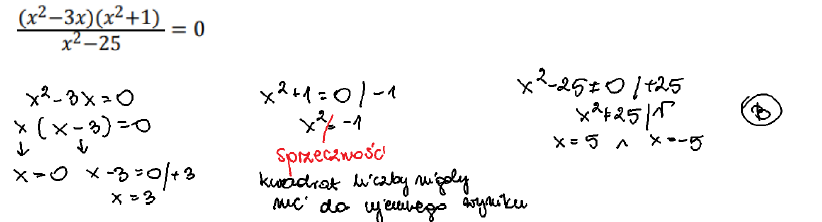 (x²−3x)(x²+1) / x²−25 = 0
x² - 3x = 0
x (x - 3) = 0
↓ ↓
x = 0 x - 3 = 0 /+3
x = 3
x² + 1 = 0 / -1
x² = -1
sprzeczność
kwadrat liczby nigdy
nie da ujemnego wyniku
x² - 25 ≠ 0 / +25
x² ≠ 25 / √
x = 5 ∧ x = -5
B